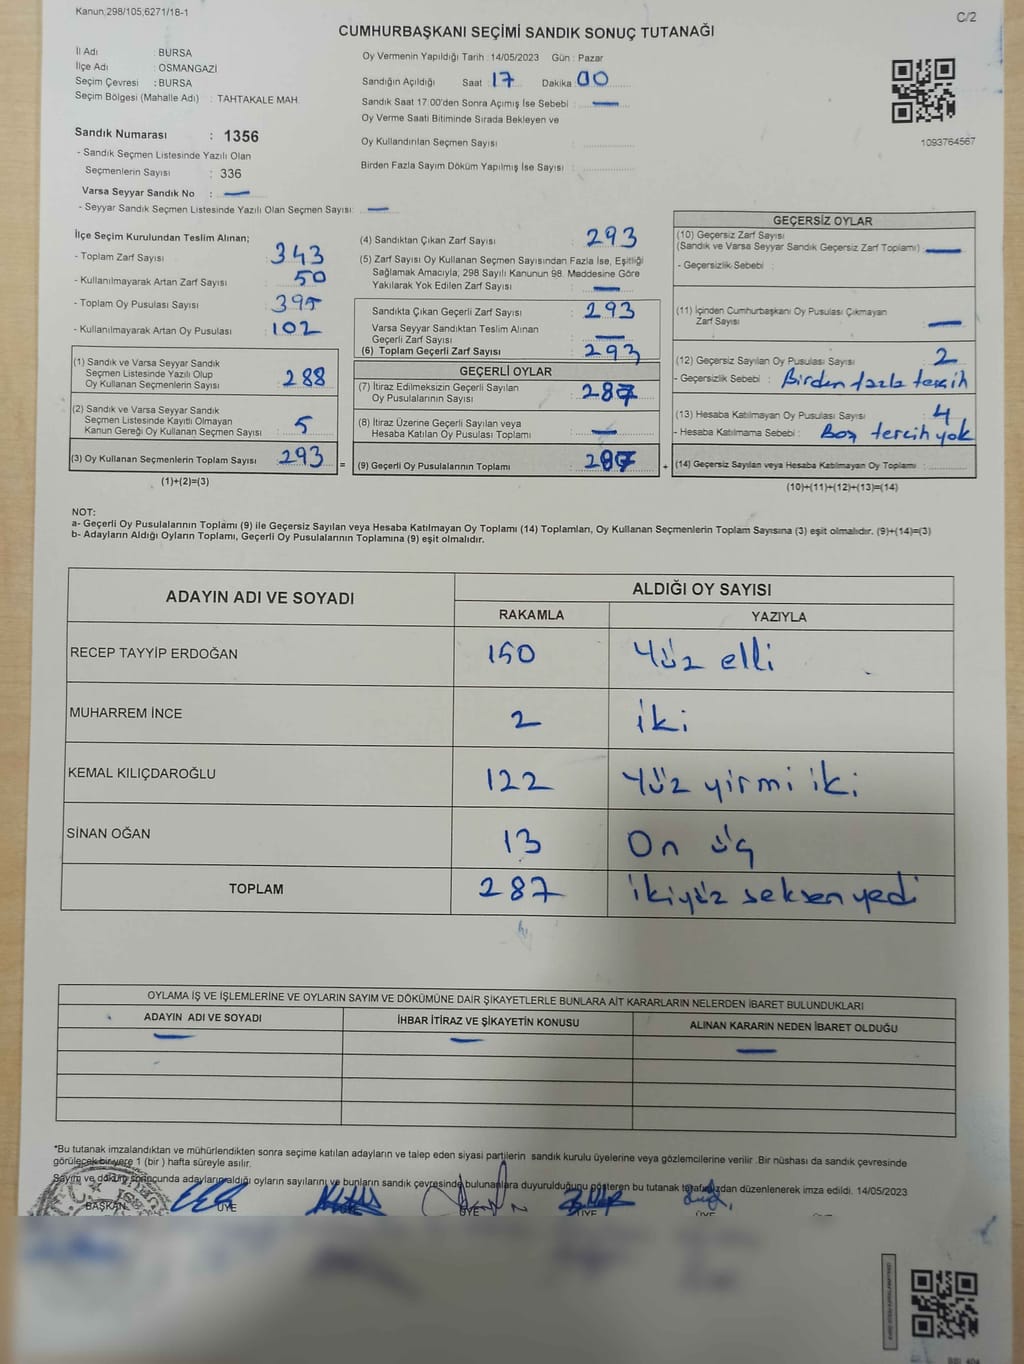 Kanun,298/105,6271/18-1
C/2
CUMHURBAŞKANI SEÇİMİ SANDIK SONUÇ TUTANAĞI
İl Adı : BURSA
İlçe Adı : OSMANGAZİ
Seçim Çevresi : BURSA
Seçim Bölgesi (Mahalle Adı) : TAHTAKALE MAH.
Oy Vermenin Yapıldığı Tarih :14/05/2023 Gün : Pazar
Sandığın Açıldığı Saat : 17 Dakika : 00
Sandık Saat 17:00'den Sonra Açımış İse Sebebi : —
Oy Verme Saati Bitiminde Sırada Bekleyen ve
Oy Kullandırılan Seçmen Sayısı :
Birden Fazla Sayım Döküm Yapılmış İse Sayısı :
1093764567
Sandık Numarası : 1356
- Sandık Seçmen Listesinde Yazılı Olan
Seçmenlerin Sayısı : 336
Varsa Seyyar Sandık No : —
- Seyyar Sandık Seçmen Listesinde Yazılı Olan Seçmen Sayısı: —
İlçe Seçim Kurulundan Teslim Alınan;
- Toplam Zarf Sayısı : 343
- Kullanılmayarak Artan Zarf Sayısı : 50
- Toplam Oy Pusulası Sayısı : 395
- Kullanılmayarak Artan Oy Pusulası : 102
(1) Sandık ve Varsa Seyyar Sandık
Seçmen Listesinde Yazılı Olup
Oy Kullanan Seçmenlerin Sayısı : 288
(2) Sandık ve Varsa Seyyar Sandık
Seçmen Listesinde Kayıtlı Olmayan
Kanun Gereği Oy Kullanan Seçmen Sayısı : 5
(3) Oy Kullanan Seçmenlerin Toplam Sayısı : 293
(1)+(2)=(3)
(4) Sandıktan Çıkan Zarf Sayısı : 293
(5) Zarf Sayısı Oy Kullanan Seçmen Sayısından Fazla İse, Eşitliği
Sağlamak Amacıyla, 298 Sayılı Kanunun 98. Maddesine Göre
Yakılarak Yok Edilen Zarf Sayısı : —
Sandıkta Çıkan Geçerli Zarf Sayısı : 293
Varsa Seyyar Sandıktan Teslim Alınan
Geçerli Zarf Sayısı : —
(6) Toplam Geçerli Zarf Sayısı : 293
GEÇERLİ OYLAR
(7) İtiraz Edilmeksizin Geçerli Sayılan
Oy Pusulalarının Sayısı : 287
(8) İtiraz Üzerine Geçerli Sayılan veya
Hesaba Katılan Oy Pusulası Toplamı : —
= (9) Geçerli Oy Pusulalarının Toplamı : 287
GEÇERSİZ OYLAR
(10) Geçersiz Zarf Sayısı
(Sandık ve Varsa Seyyar Sandık Geçersiz Zarf Toplamı) : —
- Geçersizlik Sebebi :
(11) İçinden Cumhurbaşkanı Oy Pusulası Çıkmayan
Zarf Sayısı : —
(12) Geçersiz Sayılan Oy Pusulası Sayısı : 2
- Geçersizlik Sebebi : Birden fazla tercih
(13) Hesaba Katılmayan Oy Pusulası Sayısı : 4
- Hesaba Katılmama Sebebi : Boş tercih yok
+ (14) Geçersiz Sayılan veya Hesaba Katılmayan Oy Toplamı :
(10)+(11)+(12)+(13)=(14)
NOT:
a- Geçerli Oy Pusulalarının Toplamı (9) ile Geçersiz Sayılan veya Hesaba Katılmayan Oy Toplamı (14) Toplamları, Oy Kullanan Seçmenlerin Toplam Sayısına (3) eşit olmalıdır. (9)+(14)=(3)
b- Adayların Aldığı Oyların Toplamı, Geçerli Oy Pusulalarının Toplamına (9) eşit olmalıdır.
ADAYIN ADI VE SOYADI
ALDIĞI OY SAYISI
RAKAMLA YAZIYLA
RECEP TAYYİP ERDOĞAN 150 Yüz elli
MUHARREM İNCE 2 iki
KEMAL KILIÇDAROĞLU 122 Yüz yirmi iki
SİNAN OĞAN 13 On üç
TOPLAM 287 ikiyüz seksen yedi
OYLAMA İŞ VE İŞLEMLERİNE VE OYLARIN SAYIM VE DÖKÜMÜNE DAİR ŞİKAYETLERLE BUNLARA AİT KARARLARIN NELERDEN İBARET BULUNDUKLARI
ADAYIN ADI VE SOYADI İHBAR İTİRAZ VE ŞİKAYETİN KONUSU ALINAN KARARIN NEDEN İBARET OLDUĞU
— — —
*Bu tutanak imzalandıktan ve mühürlendikten sonra seçime katılan adayların ve talep eden siyasi partilerin sandık kurulu üyelerine veya gözlemcilerine verilir .Bir nüshası da sandık çevresinde
görülecek bir yere 1 (bir ) hafta süreyle asılır.
Sayım ve döküm sonucunda adayların aldığı oyların sayılarını ve bunların sandık çevresinde bulunanlara duyurulduğunu gösteren bu tutanak tarafımızdan düzenlenerek imza edildi. 14/05/2023
BAŞKAN ÜYE ÜYE ÜYE ÜYE ÜYE